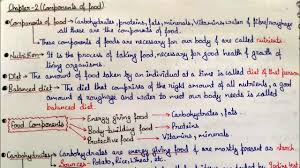 Chapter-2 (Components of food)
Components of food → Carbohydrates, proteins, fats, minerals, Vitamins, water & fiber/roughage
all these are the components of food.
These components of food are necessary for our body & are called nutrients.
Nutrition → It is the process of taking food, necessary for good health & growth of
living organisms.
Diet → The amount of food taken by an individual at a time is called diet of that person
Balanced diet → The diet that comprises of the right amount of all nutrients, a good
amount of roughage and water to meet our body needs is called
balanced diet.
Food Components → Energy giving food → Carbohydrates, Fats
→ Body-building food → Proteins
→ Protective food → Vitamins, minerals
Carbohydrates → energy giving food & are mostly present as starch
Sources → Potato, Rice, Wheat, etc.